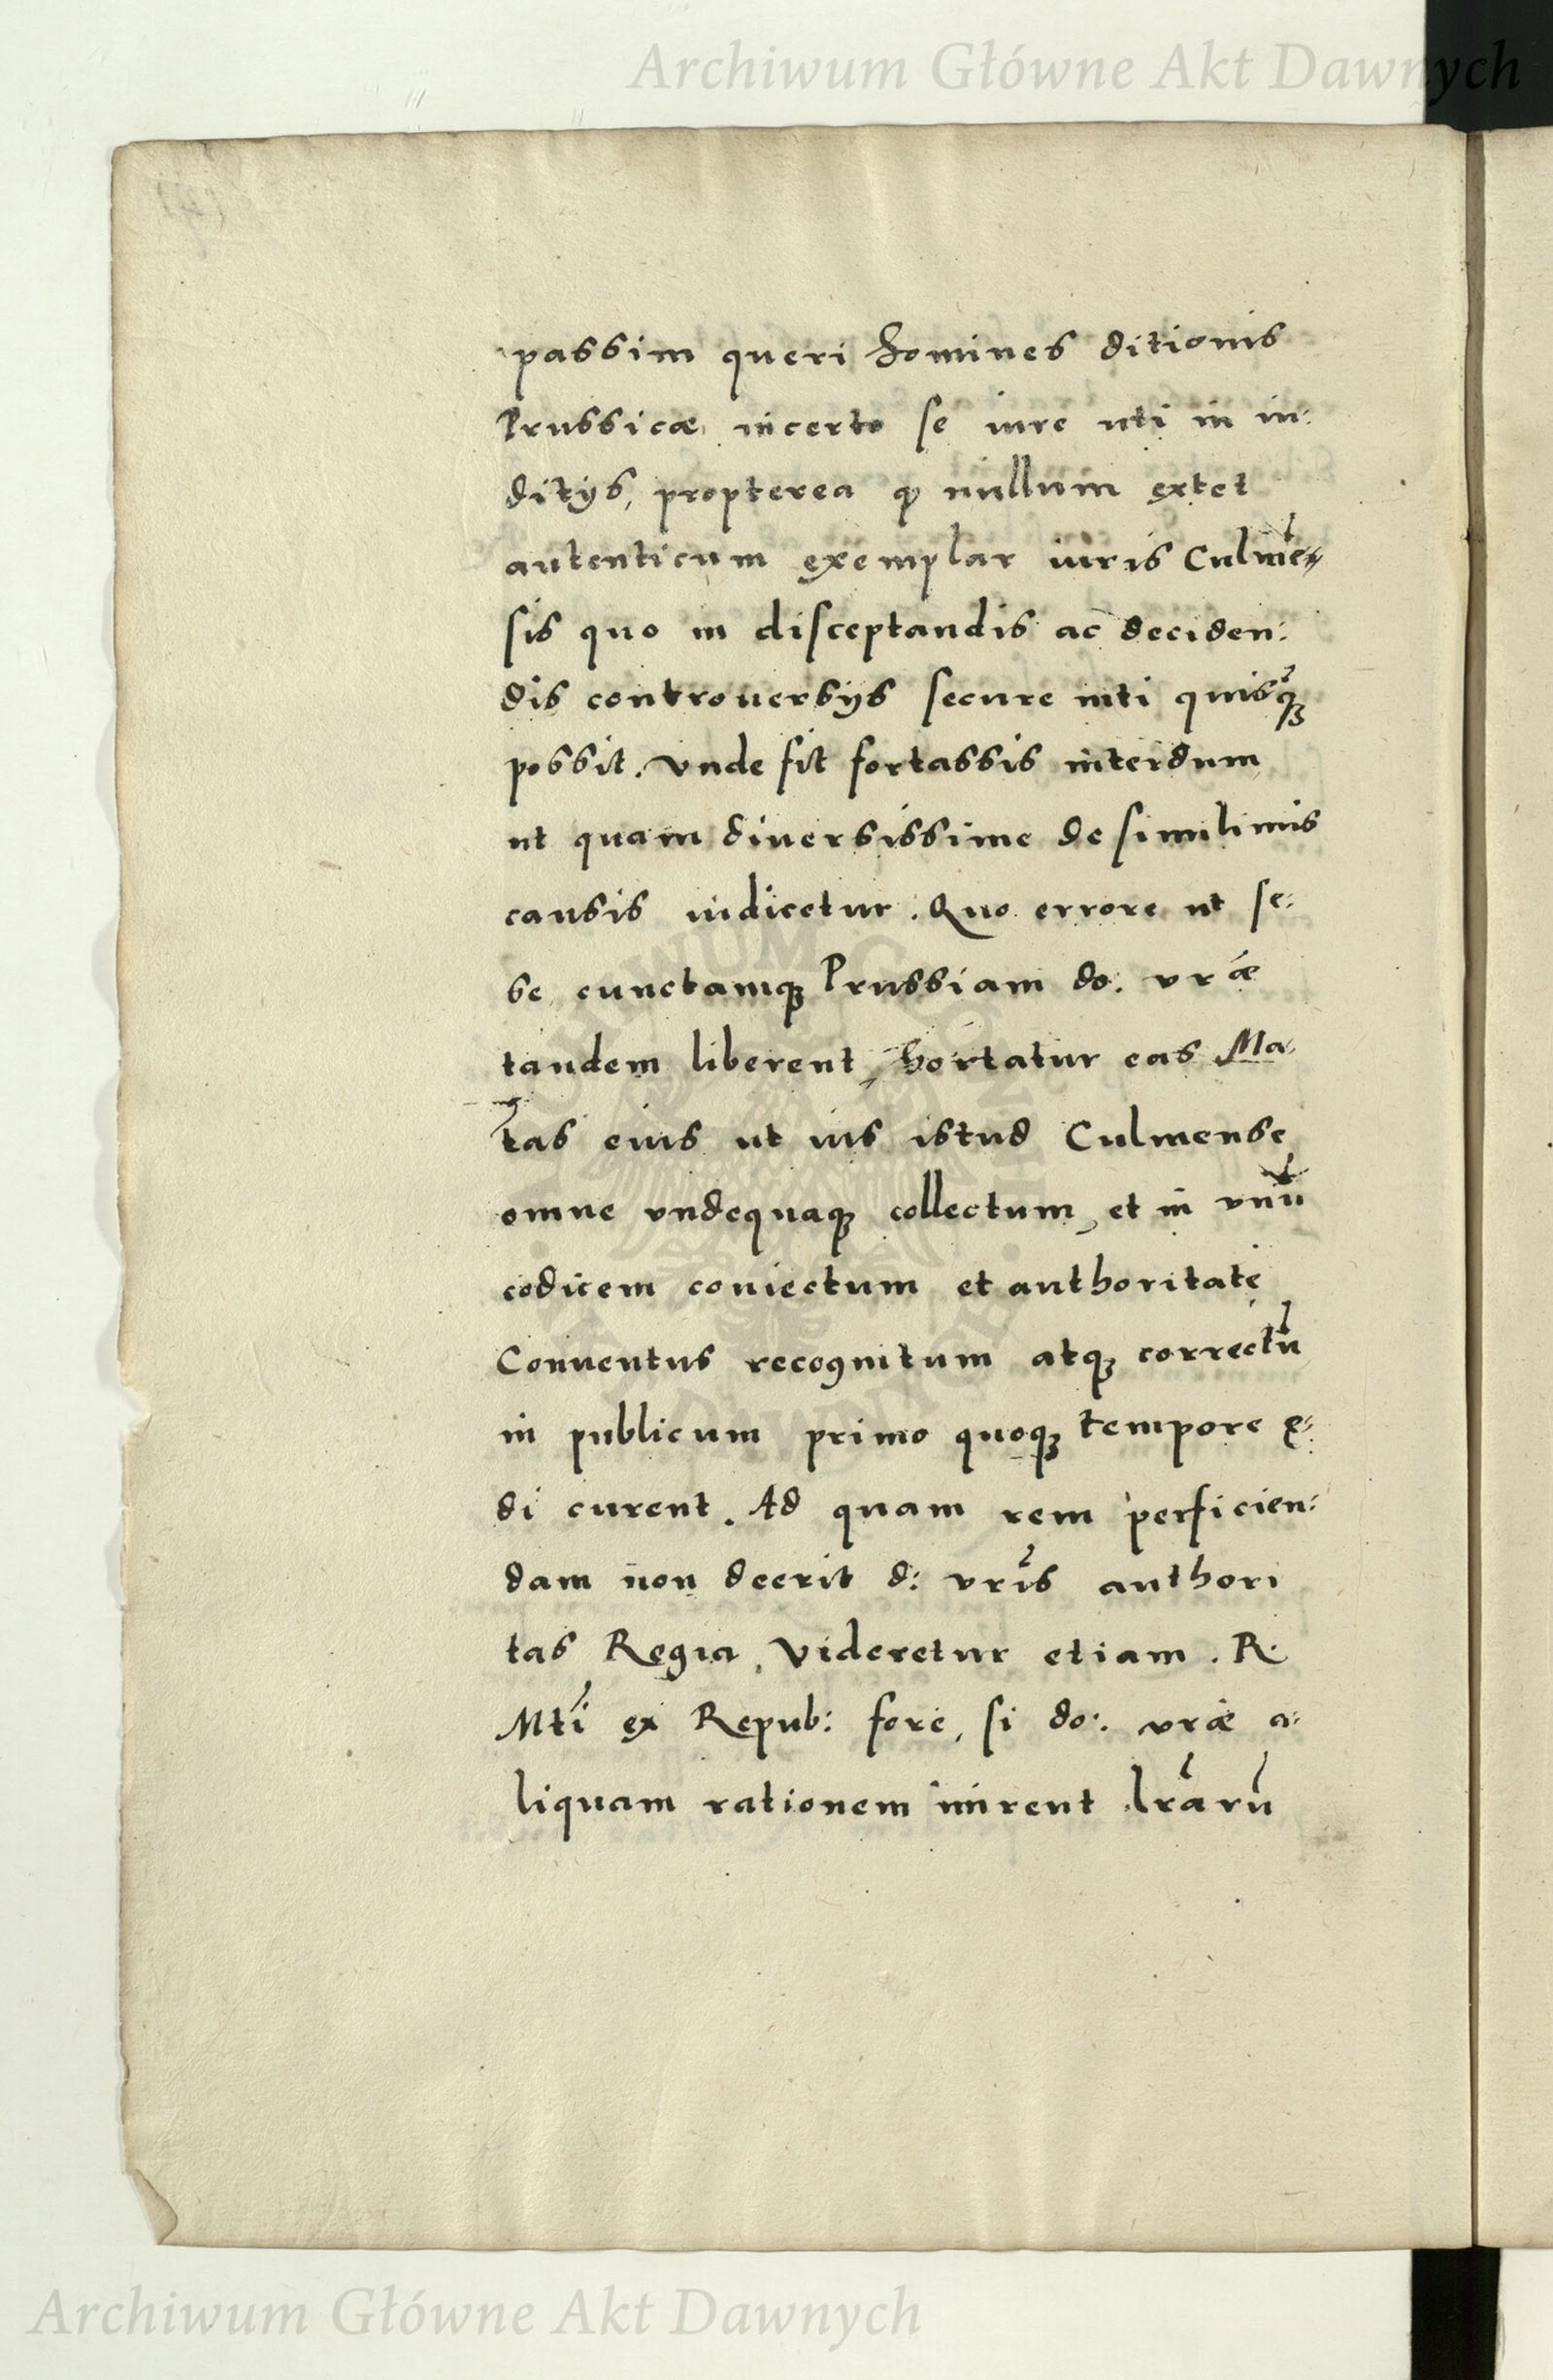 Archiwum Główne Akt Dawnych
passim queri homines ditionis
Prussicæ incerto se iure uti in iu:
ditijs, propterea qꝫ nullum extet
autenticum exemplar iuris Culmẽ-
sis quo in disceptandis ac deciden:
dis controuersijs secure niti quisqꝫ
possit. Vnde fit fortassis interdum
ut quam diuersissime de simillimis
causis iudicetur. Quo errore ut se:
se cunctamqꝫ Prussiam do: vræ
tandem liberent, hortatur eas Ma-
tas eius ut ius istud Culmense
omne vndequaqꝫ collectum, et in vnũ
codicem coniectum et authoritate
Conuentus recognitum atqꝫ correctũ
in publicum primo quoqꝫ tempore e:
di curent. Ad quam rem perficien:
dam non deerit d: vrĩs authori
tas Regia. Videretur etiam. R.
Mti ex Repub: fore, si do: vræ a:
liquam rationem inirent lrãrũ
Archiwum Główne Akt Dawnych